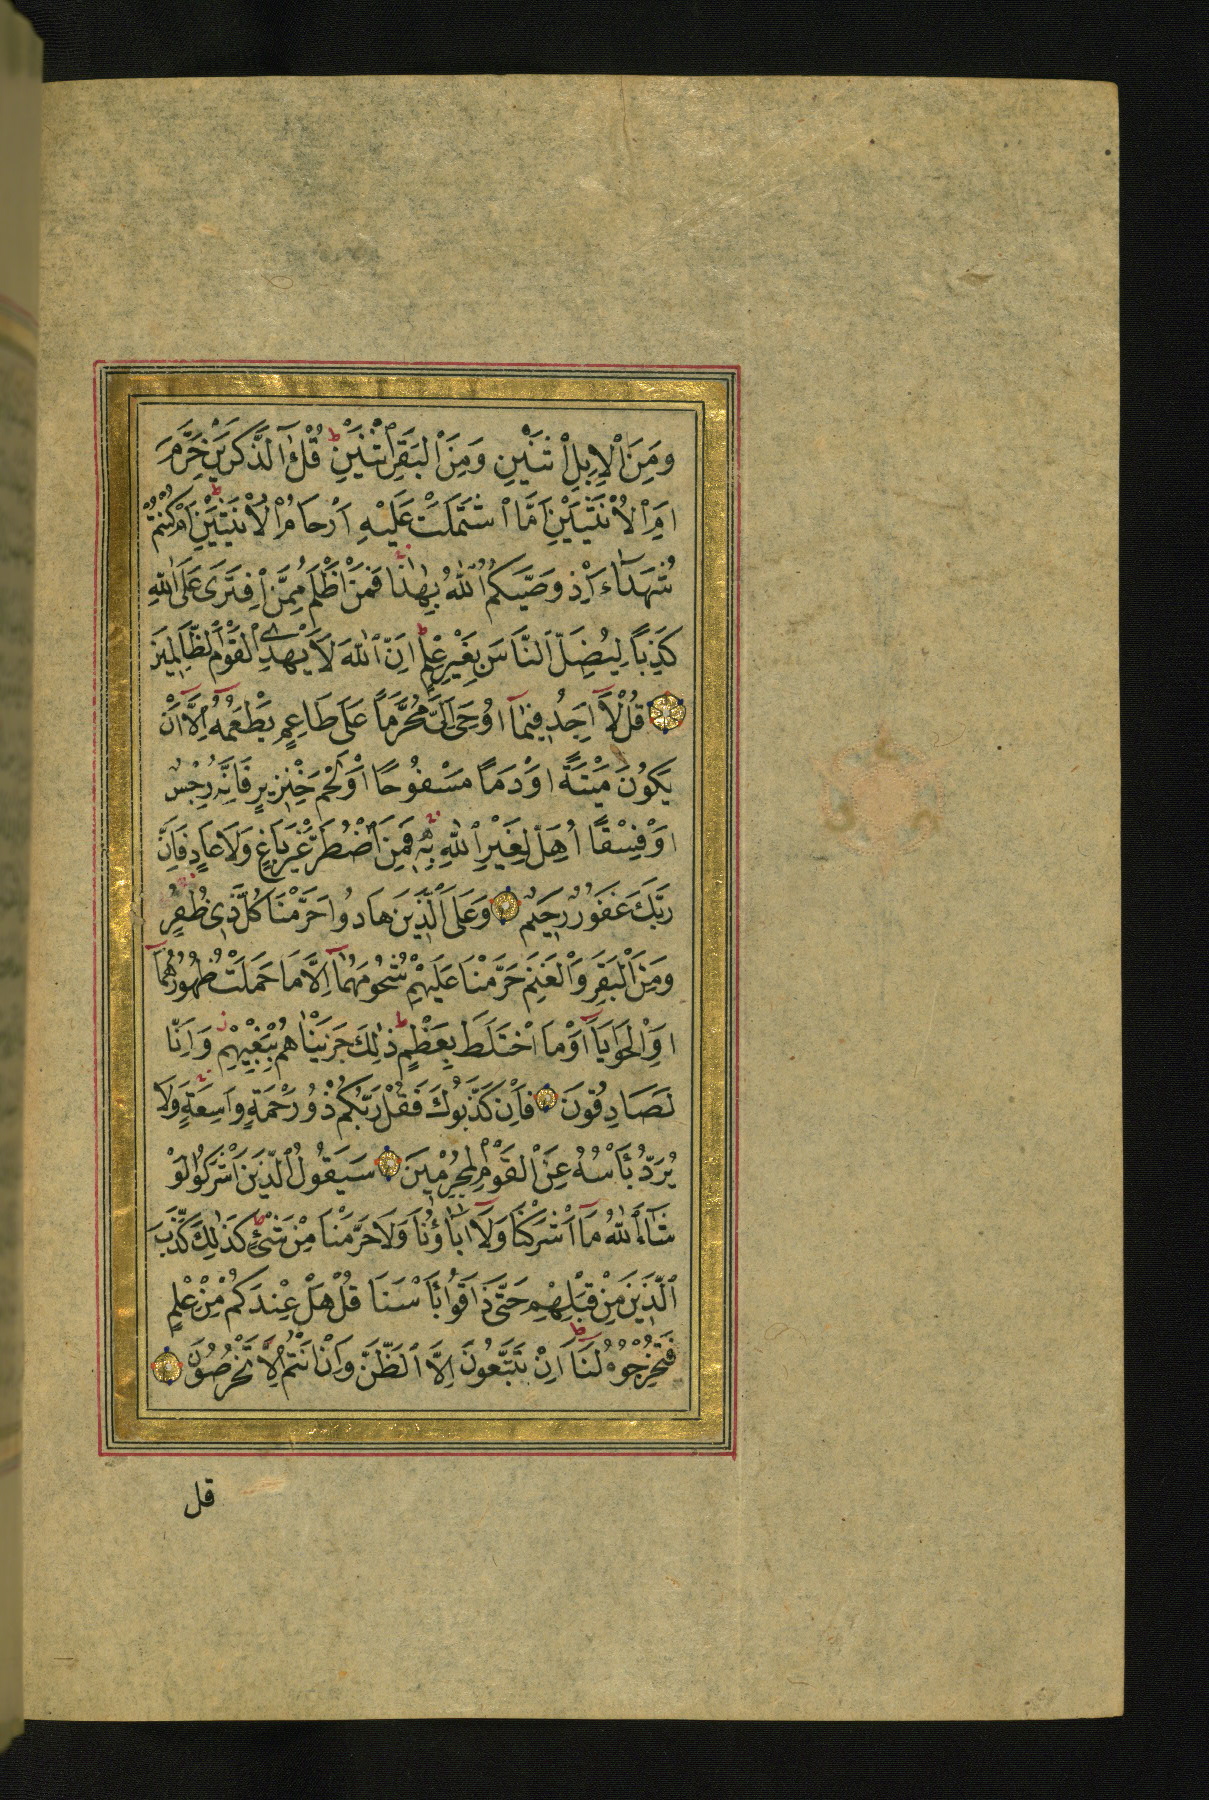 وَمِنَ ٱلْاِبِلِ ٱثْنَيْنِ وَمِنَ ٱلْبَقَرِ ٱثْنَيْنِ ط قُلْ ءٰٓالذَّكَرَيْنِ حَرَّمَ
اَمِ ٱلْاُنْثَيَيْنِ اَمَّا ٱشْتَمَلَتْ عَلَيْهِ اَرْحَامُ ٱلْاُنْثَيَيْنِ ط اَمْ كُنْتُمْ
شُهَدَٓاءَ اِذْ وَصّٰيكُمُ ٱللّٰهُ بِهٰذَا فَمَنْ اَظْلَمُ مِمَّنِ ٱفْتَرٰى عَلَى ٱللّٰهِ
كَذِبًا لِيُضِلَّ ٱلنَّاسَ بِغَيْرِ عِلْمٍ ط اِنَّ ٱللّٰهَ لَا يَهْدِى ٱلْقَوْمَ ٱلظَّالِمِينَ
قُلْ لَٓا اَجِدُ فِيمَٓا اُوحِىَ اِلَىَّ مُحَرَّمًا عَلٰى طَاعِمٍ يَطْعَمُهُٓ اِلَّٓا اَنْ
يَكُونَ مَيْتَةً اَوْ دَمًا مَسْفُوحًا اَوْ لَحْمَ خِنْزِيرٍ فَاِنَّهُ رِجْسٌ
اَوْ فِسْقًا اُهِلَّ لِغَيْرِ ٱللّٰهِ بِهِ فَمَنِ ٱضْطُرَّ غَيْرَ بَاغٍ وَلَا عَادٍ فَاِنَّ
رَبَّكَ غَفُورٌ رَحِيمٌ وَعَلَى ٱلَّذِينَ هَادُوا حَرَّمْنَا كُلَّ ذِى ظُفُرٍ
وَمِنَ ٱلْبَقَرِ وَٱلْغَنَمِ حَرَّمْنَا عَلَيْهِمْ شُحُومَهُمَٓا اِلَّا مَا حَمَلَتْ ظُهُورُهُمَٓا
اَوِ ٱلْحَوَايَٓا اَوْ مَا ٱخْتَلَطَ بِعَظْمٍ ط ذٰلِكَ جَزَيْنَاهُمْ بِبَغْيِهِمْ وَاِنَّا
لَصَادِقُونَ فَاِنْ كَذَّبُوكَ فَقُلْ رَبُّكُمْ ذُو رَحْمَةٍ وَاسِعَةٍ وَلَا
يُرَدُّ بَأْسُهُ عَنِ ٱلْقَوْمِ ٱلْمُجْرِمِينَ سَيَقُولُ ٱلَّذِينَ اَشْرَكُوا لَوْ
شَٓاءَ ٱللّٰهُ مَٓا اَشْرَكْنَا وَلَٓا اٰبَٓاؤُنَا وَلَا حَرَّمْنَا مِنْ شَىْءٍ ط كَذٰلِكَ كَذَّبَ
ٱلَّذِينَ مِنْ قَبْلِهِمْ حَتّٰى ذَاقُوا بَأْسَنَا قُلْ هَلْ عِنْدَكُمْ مِنْ عِلْمٍ
فَتُخْرِجُوهُ لَنَا ط اِنْ تَتَّبِعُونَ اِلَّا ٱلظَّنَّ وَاِنْ اَنْتُمْ اِلَّا تَخْرُصُونَ
قل